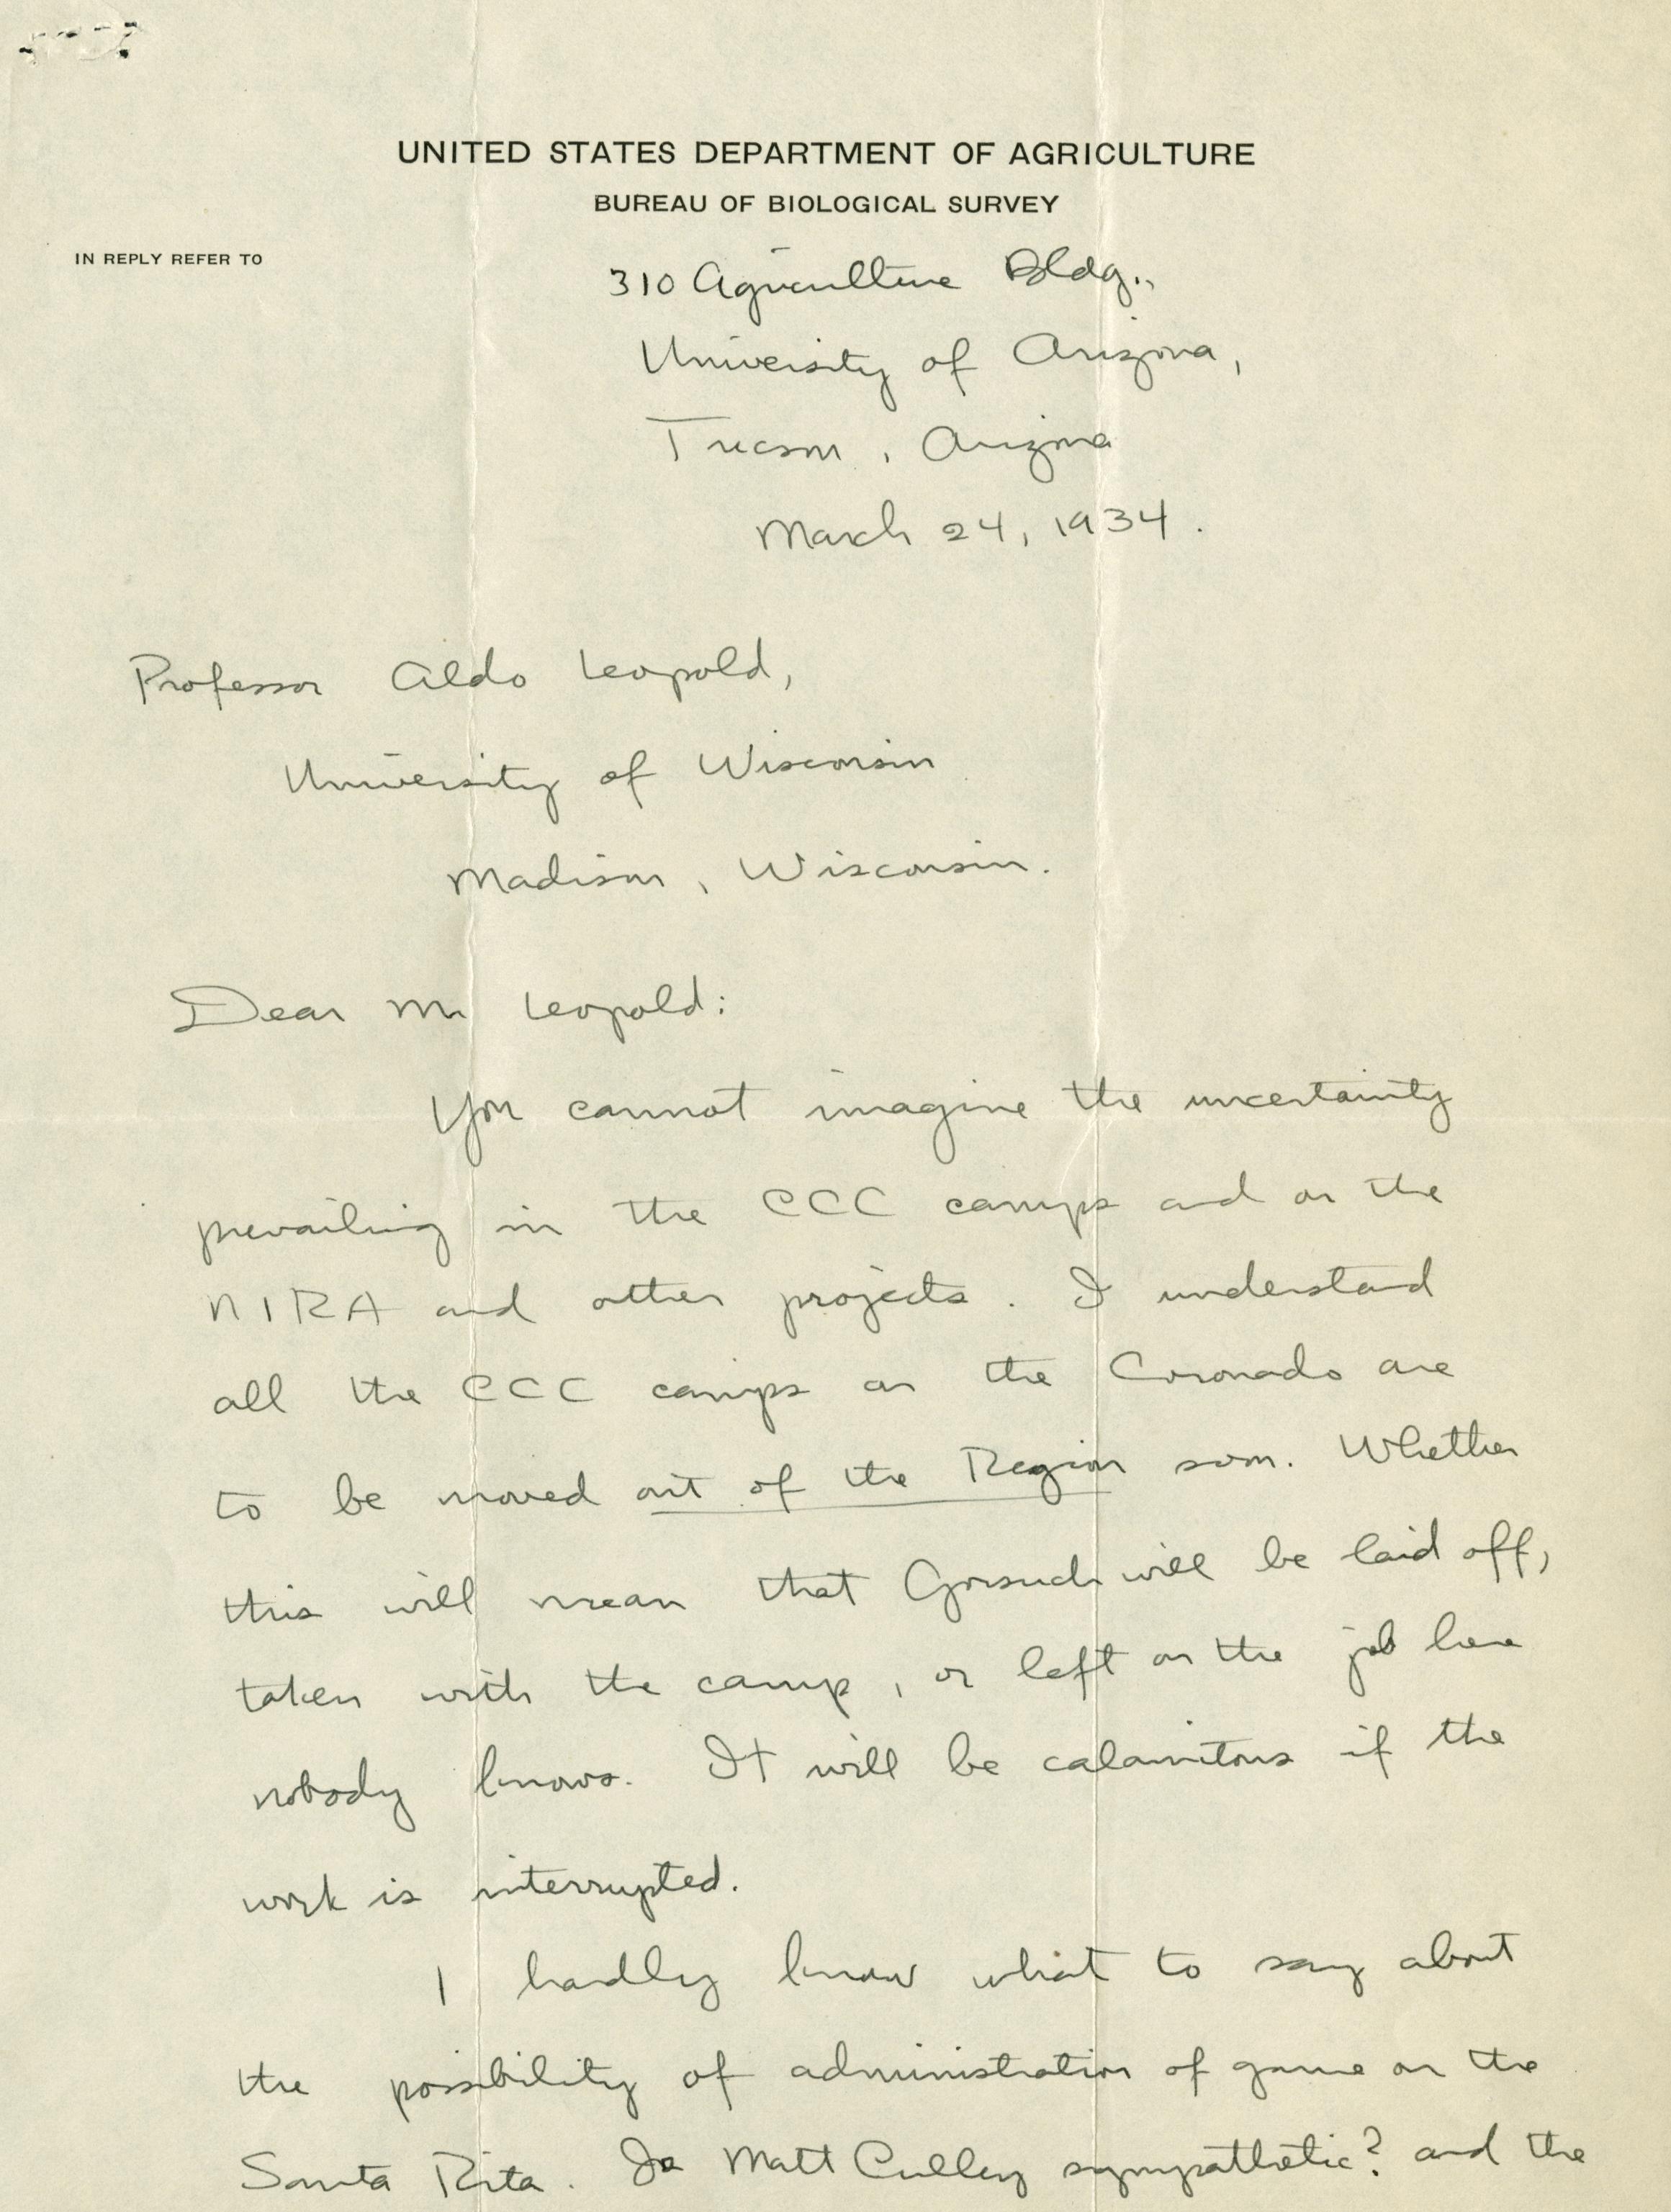 UNITED STATES DEPARTMENT OF AGRICULTURE
BUREAU OF BIOLOGICAL SURVEY
IN REPLY REFER TO
310 Agriculture Bldg.,
University of Arizona,
Tucson, Arizona
March 24, 1934.
Professor Aldo Leopold,
University of Wisconsin
Madison, Wisconsin.
Dear Mr Leopold:
You cannot imagine the uncertainty
prevailing in the CCC camps and on the
NIRA and other projects. I understand
all the CCC camps on the Coronado are
to be moved out of the Region soon. Whether
this will mean that Gorsuch will be laid off,
taken with the camp, or left on the job here
nobody knows. It will be calamitous if the
work is interrupted.
I hardly know what to say about
the possibility of administration of game on the
Santa Rita. Is Matt Culley sympathetic? and the